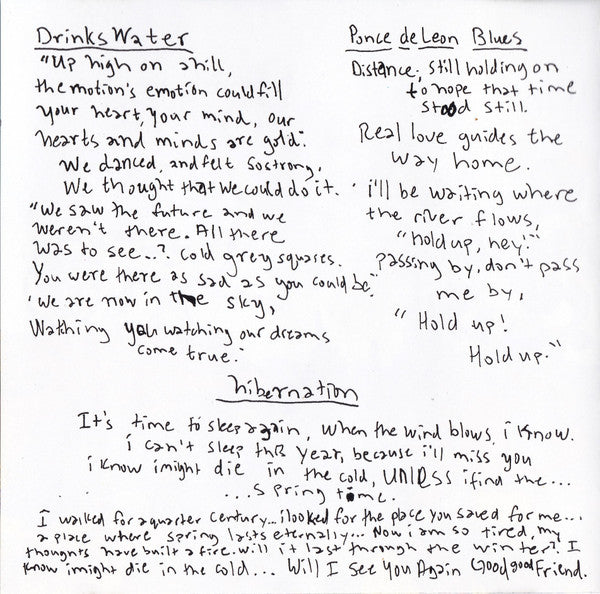 Drinks Water
"Up high on a hill,
the motion's emotion could fill
your heart, your mind, our
hearts and minds are gold."
We danced, and felt so strong,
We thought that we could do it.
"We saw the future and we
weren't there. All there
was to see..? Cold grey squares.
You were there as sad as you could be."
'We are now in the sky,
Watching you watching our dreams
come true.'
Ponce de Leon Blues
Distance; still holding on
to hope that time
stood still.
Real love guides the
way home.
i'll be waiting where
the river flows,
"hold up, hey!"
Passing by, don't pass
me by,
"Hold up!
Hold up."
hibernation
It's time to sleep again, when the wind blows, i know.
i can't sleep this year, because i'll miss you
i know i might die in the cold, UNLESS i find the...
...spring time.
I walked for a quarter century... i looked for the place you saved for me...
a place where spring lasts eternally... Now i am so tired, my
thoughts have built a fire. will it last through the winter? I
know i might die in the cold... Will I see You Again Good good Friend.